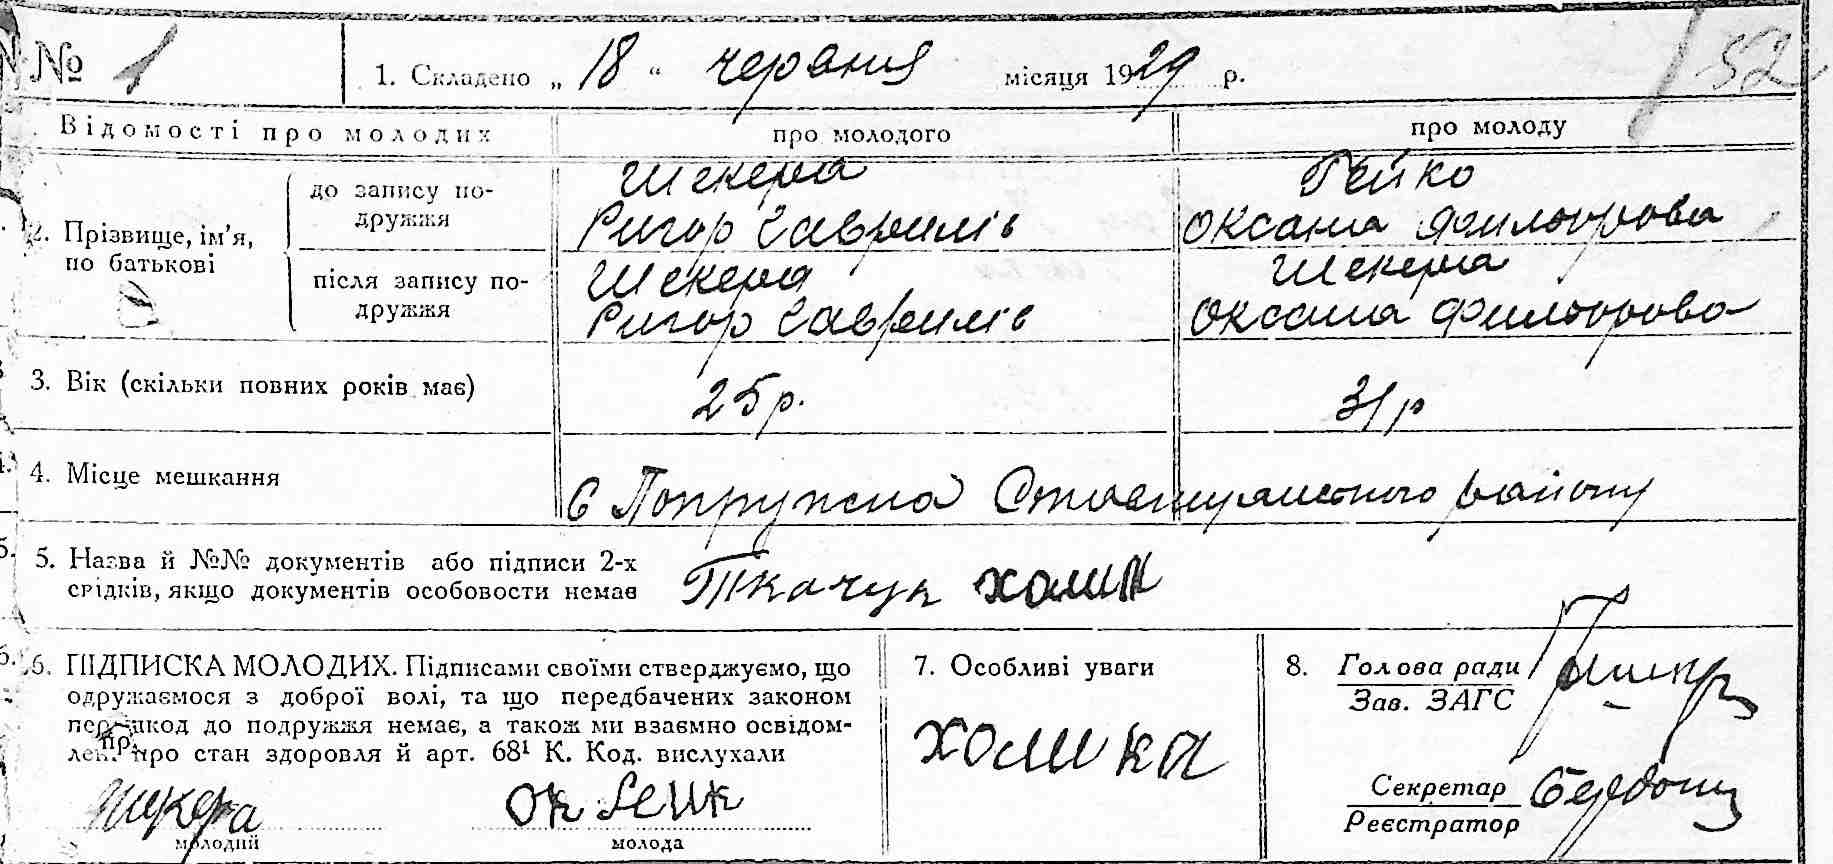 № 1 1. Складено „ 18 “ червня місяця 1929 р. 52
Відомості про молодих про молодого про молоду
2. Прізвище, ім’я, по батькові
до запису подружжя
Шекера
Ригор Гаврилів
Гейко
Оксана Филозрова
після запису подружжя
Шекера
Ригор Гаврилів
Шекера
Оксана
3. Вік (скільки повних років має) 25 р. 31 р
4. Місце мешкання с Попружна району
5. Назва й №№ документів або підписи 2-х
свідків, якщо документів особовости немає Ткачук холик
6. ПІДПИСКА МОЛОДИХ. Підписами своїми стверджуємо, що
одружаємося з доброї волі, та що передбачених законом
перешкод до подружжя немає, а також ми взаємно освідом-
лені про стан здоров’я й арт. 68¹ К. Код. вислухали
Шикера
молодий
молода
7. Особливі уваги
8. Голова ради
Зав. ЗАГС
Секретар
Реєстратор